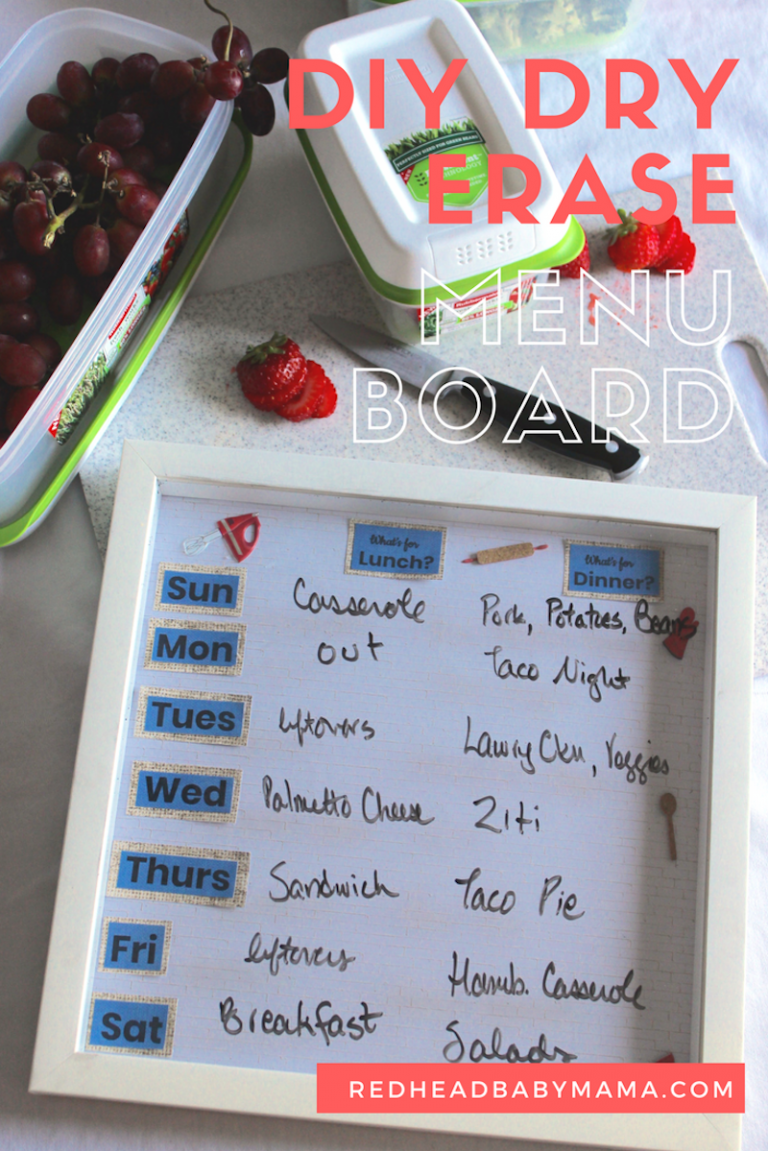 DIY DRY
ERASE
MENU
BOARD
PERFECTLY SIZED FOR GREEN BEANS
What's for
Lunch?
What's for
Dinner?
Sun Casserole Pork, Potatoes, Beans
Mon out Taco Night
Tues leftovers Lawry Ckn, Veggies
Wed Palmetto Cheese Ziti
Thurs Sandwich Taco Pie
Fri leftovers Hamb. Casserole
Sat Breakfast Salads
REDHEADBABYMAMA.COM